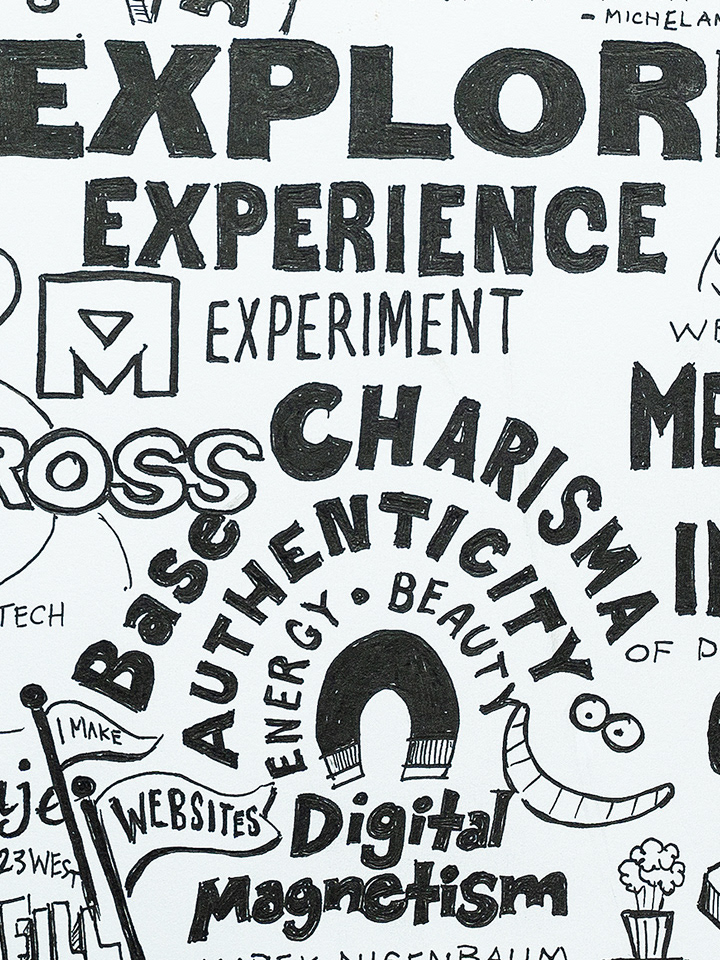 - MICHELAN
EXPLOR
EXPERIENCE
M
EXPERIMENT
WE
ROSS
ME
Base CHARISMA
AUTHENTICITY
ENERGY • BEAUTY
TECH
OF D
I MAKE
WEBSITES
aje
Digital
Magnetism
23 WEST